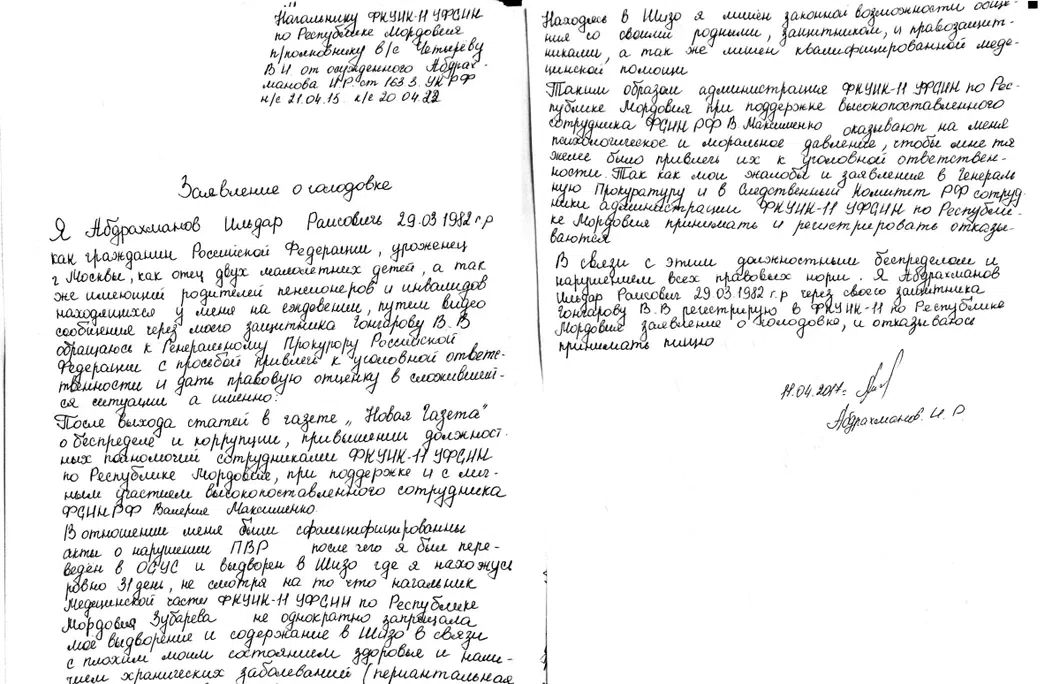 Начальнику ФКУИК-11 УФСИН
по Республике Мордовия
п/полковнику в/с Четыреву
В И от осужденного Абдрах-
манова И.Р. ст 163 3. УК РФ
н/с 21.04.15 к/с 20.04.22
Заявление о голодовке
Я Абдрахманов Ильдар Раисович 29.03 1982 г.р
как гражданин Российской Федерации, уроженец
г Москвы, как отец двух малолетних детей, а так
же имеющий родителей пенсионеров и инвалидов
находящихся у меня на еждевении, путем видео
сообщения через моего защитника Гончарову В.В
обращаюсь к Генеральному Прокурору Российской
Федерации с просьбой привлечь к уголовной ответс-
твенности и дать правовую отценку в сложившей-
ся ситуации а именно:
После выхода статей в газете „Новая Газета"
о беспределе и коррупции, привышении должност-
ных полномочий сотрудниками ФКУИК-11 УФСИН
по Республике Мордовия, при поддержке и с лич-
ным участием высокопоставленного сотрудника
ФСИН РФ Валерия Максименко
В отношении меня были сфальцифицированны
акты о нарушении ПВР после чего я был пере-
веден в ОСУС и выдворен в Шизо где я нахожусь
ровно 31 день, не смотря на то что начальник
Медецинской части ФКУИК-11 УФСИН по Республике
Мордовия Зубарева не однократно запрещала
моё выдворение и содержание в Шизо в связи
с плохим моим состоянием здоровья и нали-
чием хранических забалеваний (периантальная
Находясь в Шизо я лишен законной возможности обще-
ния со своими родными, защитником, и правозащит-
никами, а так же лишен квалифицированной меде-
цинской помощи
Таким образом администрация ФКУИК-11 УФСИН по Рес-
публике Мордовия при поддержке высокопоставленного
сотрудника ФСИН РФ В. Максименко оказывают на меня
психологическое и моральное давление, чтобы мне тя
желее было привлечь их к уголовной ответствен-
ности. Так как мои жалобы и заявление в Генераль
ную Прокуратуру и в Следственный Комитет РФ сотруд-
ники администрации ФКУИК-11 УФСИН по Республи-
ке Мордовия принимать и регистрировать отказы-
ваются
В связи с этим должностным беспределом и
нарушением всех правовых норм. Я Абдрахманов
Ильдар Раисович 29.03.1982 г.р через своего защитника
Гончарову В.В регистрирую в ФКУИК-11 по Республике
Мордовия заявление о голодовке, и отказываюсь
принимать пищю
11.04.2017г
Абдрахманов. И. Р.